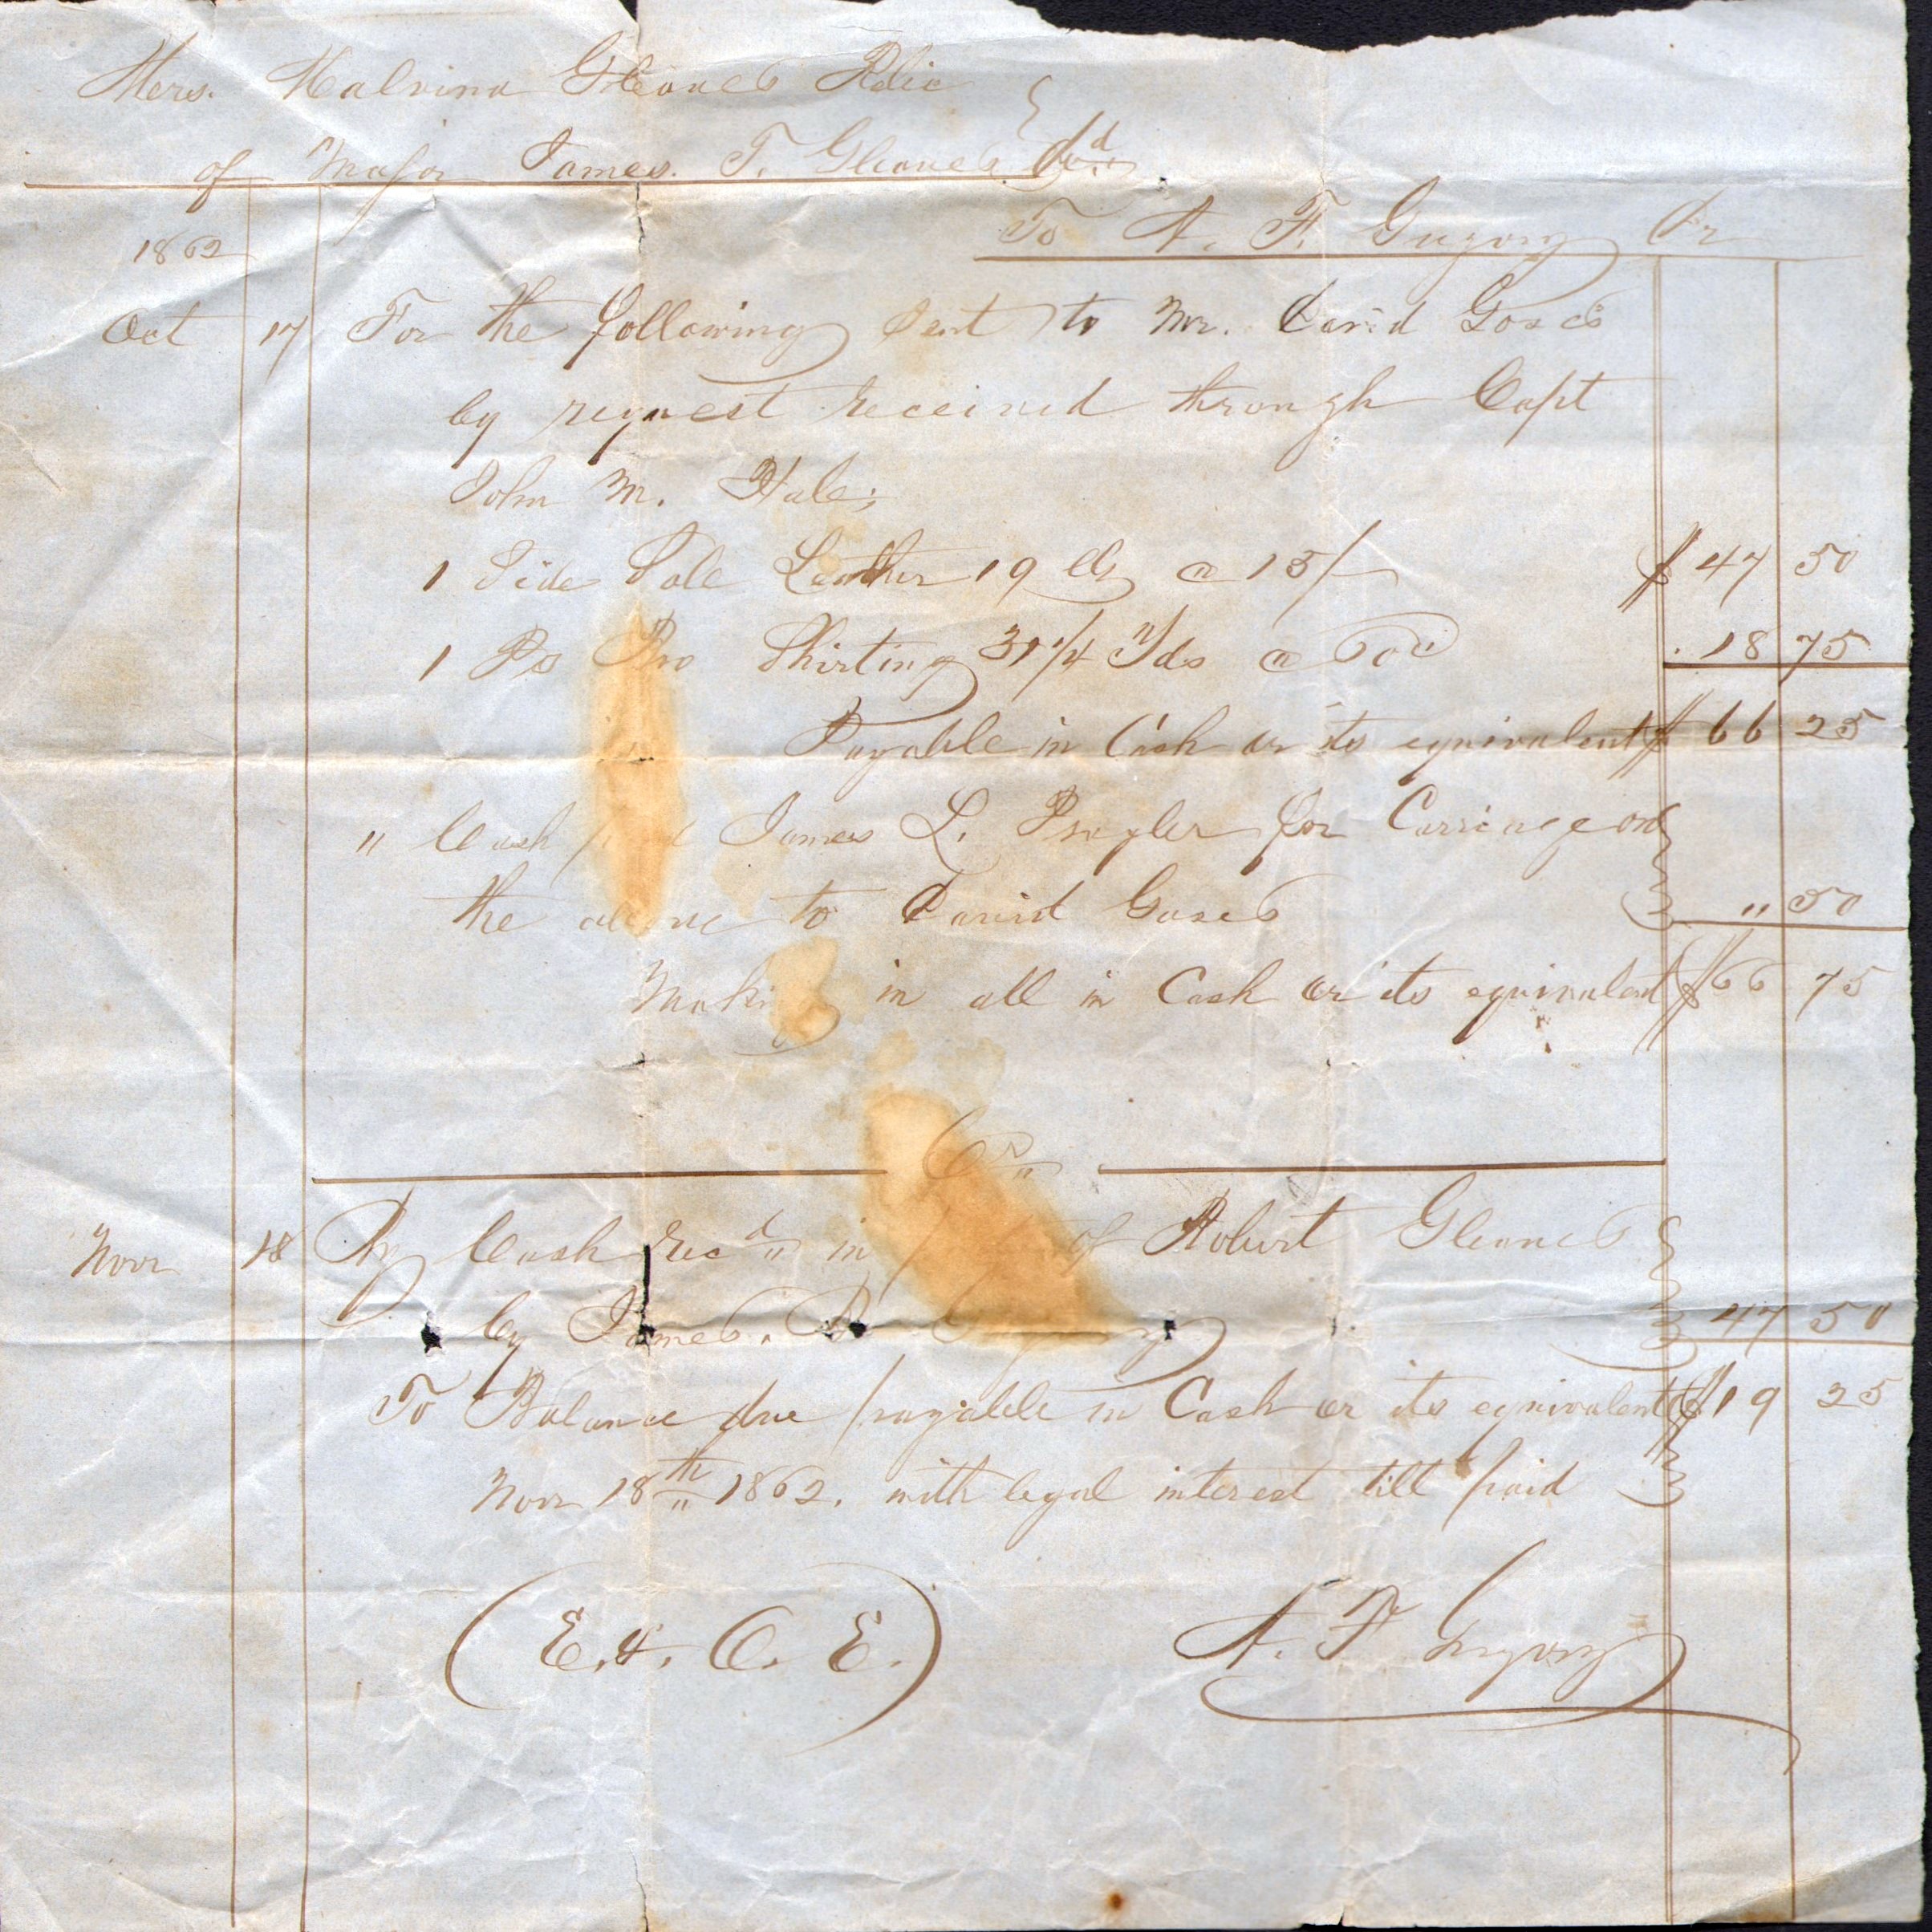 Mrs. Malvina Gleaves Relic
of Major James. T. Gleaves Decd
To A. F. Gregory Dr
1862
Oct 17 For the following sent to Mr. David Goses
by request received through Capt
John M. Hale;
1 Side Sole Leather 19 lbs @ 15/- $47 50
1 Ps Bro Shirting 31 1/4 Yds @ 60c 18 75
Payable in Cash or its equivalent $66 25
" Cash paid James L. for Carriage on
the above to David Goses " 50
Making in all in Cash or its equivalent $66 75
Cr
Novr 18 By Cash Recd in of Robert Gleaves
by James. B. 47 50
To Balance due payable in Cash or its equivalent $19 25
Novr 18th 1862. with legal interest till paid
(E. & O. E.) A. F. Gregory